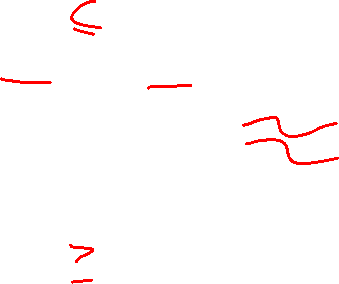 ≤
— —
≈
≥